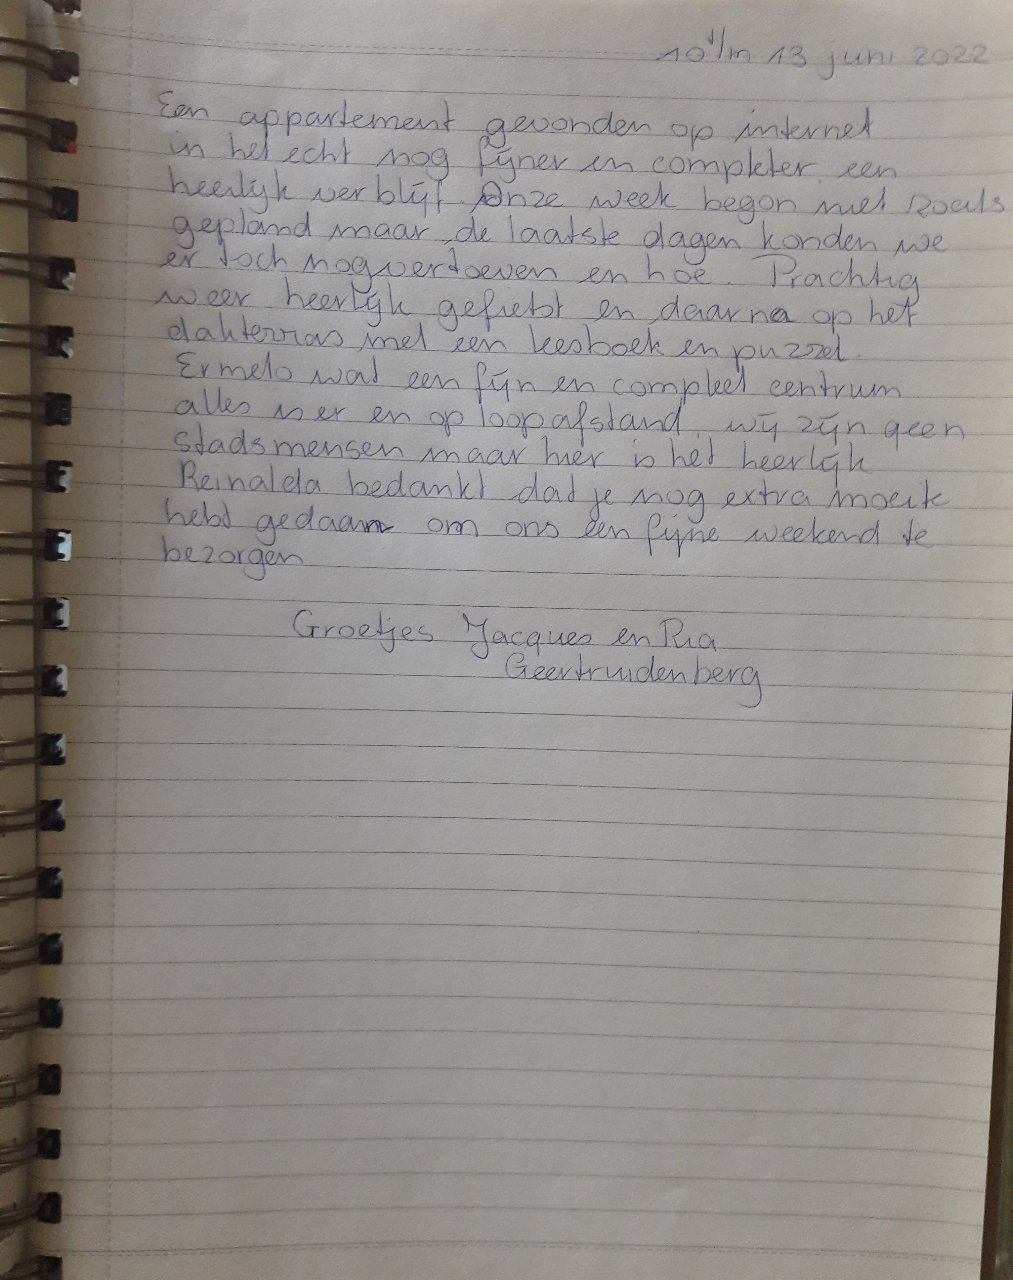 10 t/m 13 juni 2022
Een appartement gevonden op internet
in het echt nog fijner en completer een
heerlijk verblijf. Onze week begon niet zoals
gepland maar de laatste dagen konden we
er toch nog vertoeven en hoe. Prachtig
weer heerlijk gefietst en daarna op het
dakterras met een leesboek en puzzel.
Ermelo wat een fijn en compleet centrum
alles is er en op loopafstand. wij zijn geen
stadsmensen maar hier is het heerlijk
Reinalda bedankt dat je nog extra moeite
hebt gedaan om ons een fijne weekend te
bezorgen
Groetjes Jacques en Ria
Geertruidenberg